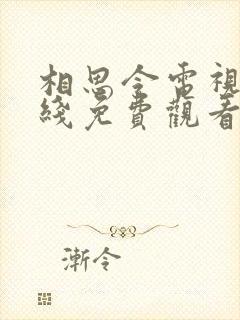 相思令電視
綫免費觀看
漸令